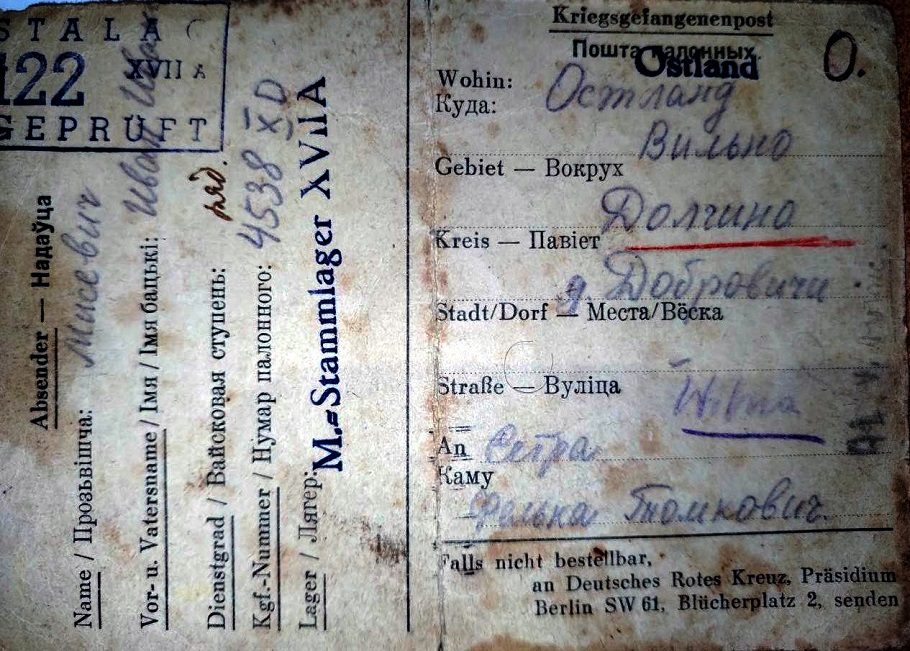 STALA
122 XVII A
GEPRÜFT
Absender — Надаўца
Name / Прозьвішча: Мисевич
Vor- u. Vatersname / Імя / Імя бацькі: Иван Ива
Dienstgrad / Вайсковая ступень: ряд.
Kgf.-Nummer / Нумар палоннога: 4538 XI D
Lager / Лягер:
M.-Stammlager XVII A
Kriegsgefangenenpost
Пошта палонных
Ostland
O.
Wohin:
Куда: Остланд
Вильно
Gebiet — Вокрух
Долгино
Kreis — Павіет
д Добровичи
Stadt/Dorf — Места/Вёска
Straße — Вуліца
Wilna
An Сетра
Каму
Томкович.
Falls nicht bestellbar,
an Deutsches Rotes Kreuz, Präsidium
Berlin SW 61, Blücherplatz 2, senden